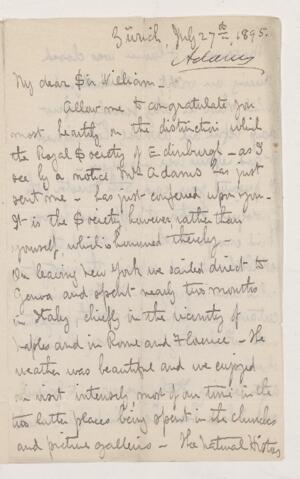 Zürich, July 27th, 1895.
Adams
My dear Sir William -
Allow me to congratulate you
most heartily on the distinction which
the Royal Society of Edinburgh - as I
see by a notice Mr Adams has just
sent me - has just conferred upon you -
It is the Society however rather than
yourself, which is honoured thereby -
On leaving New York we sailed direct to
Genoa and spent nearly two months
in Italy, chiefly in the vicinity of
Naples and in Rome and Florence - The
weather was beautiful and we enjoyed
our visit intensely most of our time in the
two latter places being spent in the churches
and picture galleries - The Natural History